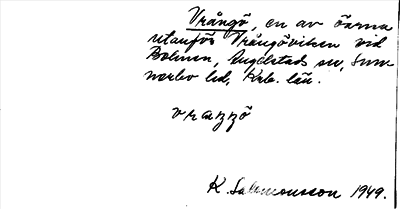 Vrångö, en av öarna
utanför Vrångöviken vid
Bolmen, Angelstad sn, Sunn-
nerbo hd, Krb. län.
vrazzö
K. Salomonsson 1949.